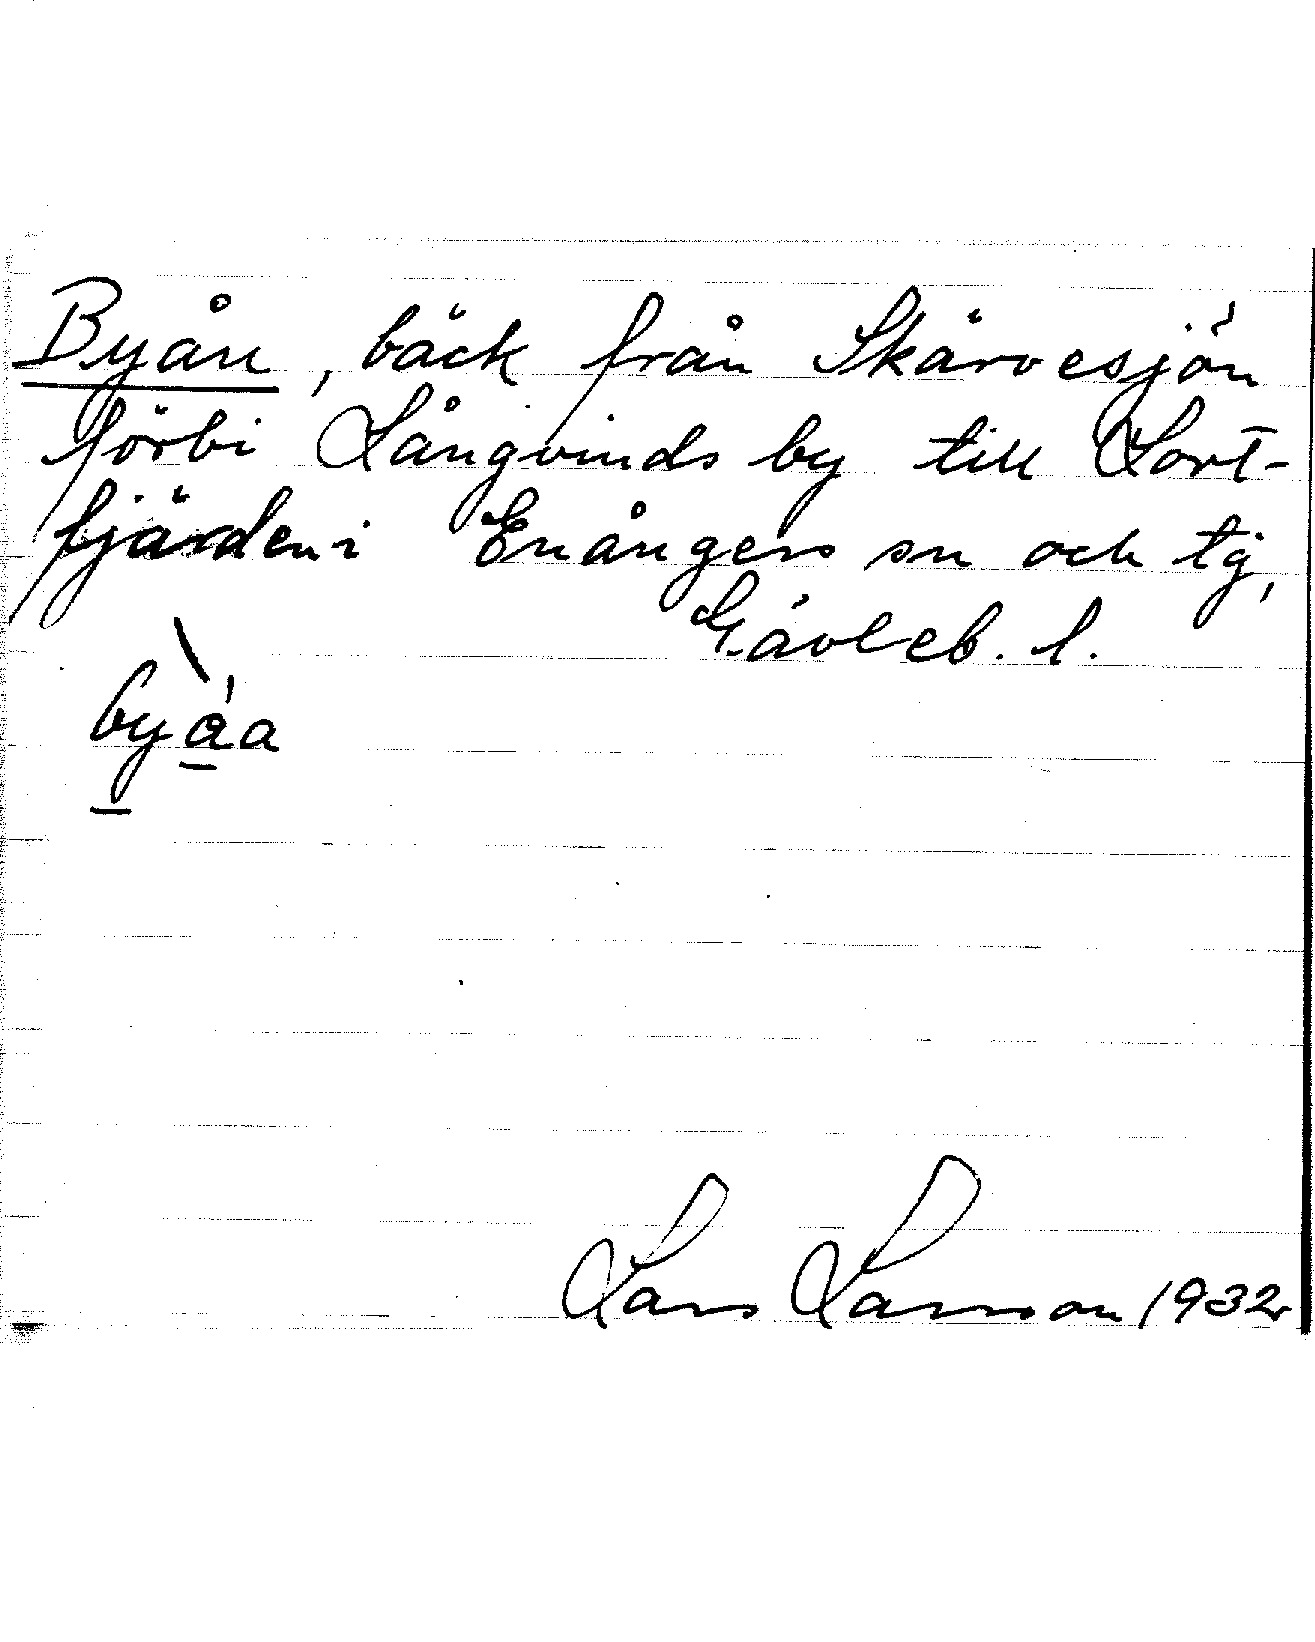 Byån, bäck från Skärvesjön
förbi Långvinds by till Lort-
fjärden i Enångers sn och tg,
Gävleb. l.
byåa
Lars Larsson 1932